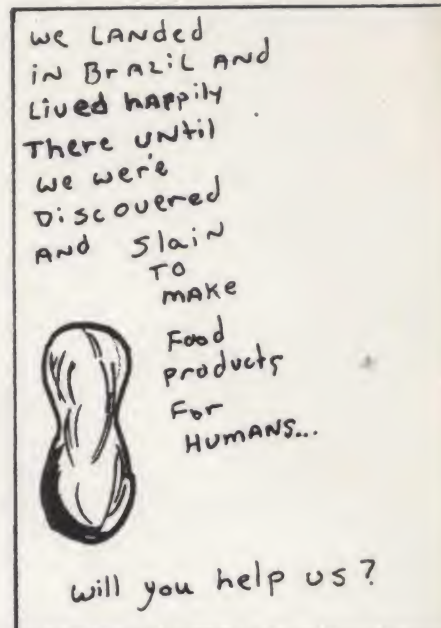 we LANded
iN BrAZiL ANd
Lived hAppily
There UNtil
we we're
DiscOvered
ANd Slain
TO
mAKe
Food
products
For
HUmANS...
will you help us?